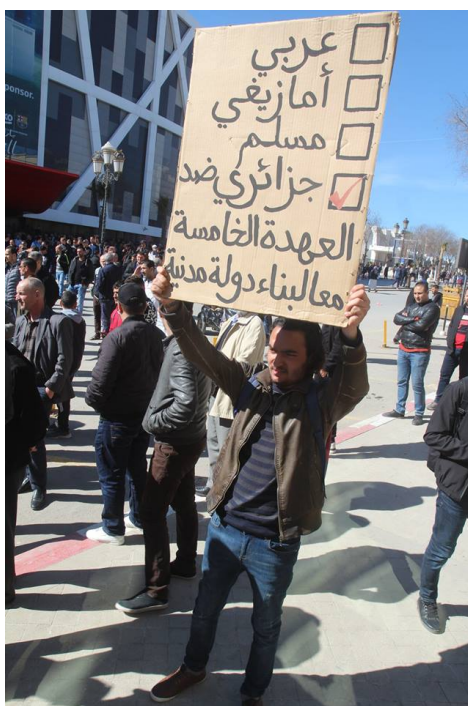 عربي
أمازيغي
مسلم
جزائري ضد
العهدة الخامسة
معا لبناء دولة مدنية
ponsor.